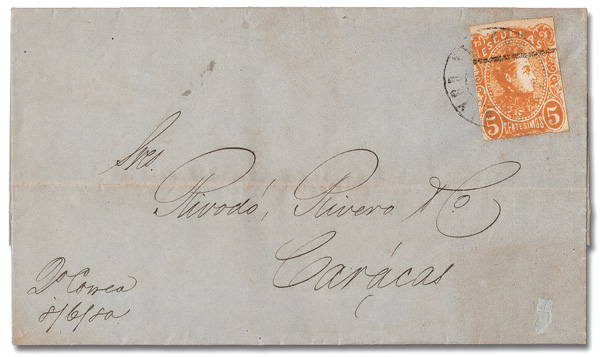 ESCUELAS
5 CENTESIMOS 5
Sres.
Rivodó, Rivero & Co.
Carácas
Do Correa
8/6/80